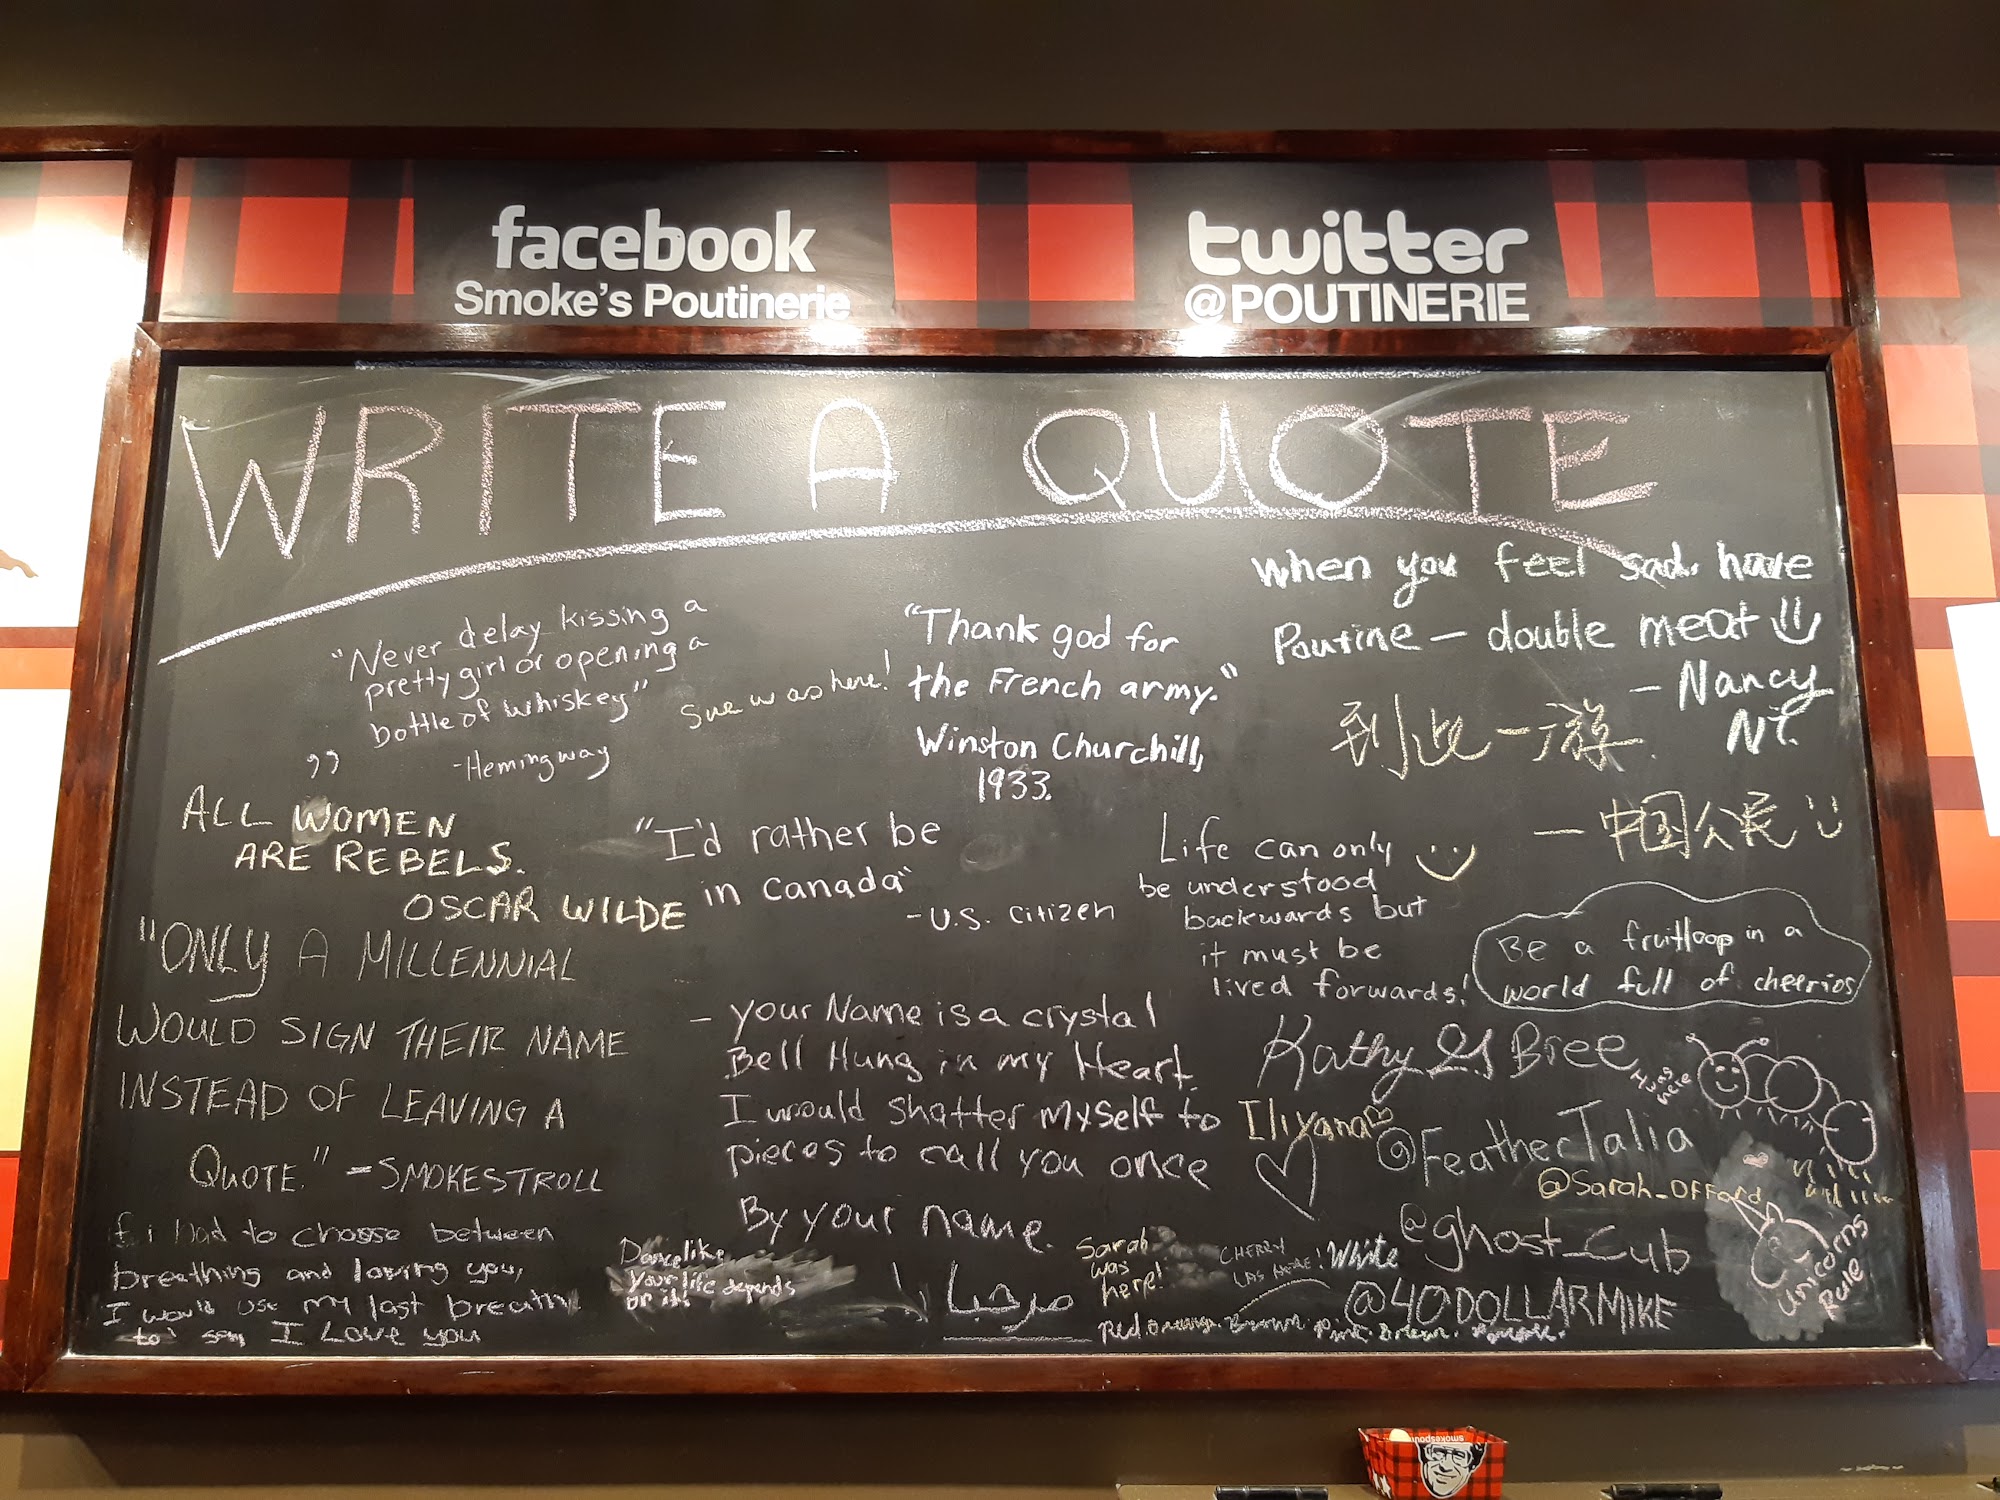 facebook
Smoke's Poutinerie
twitter
@POUTINERIE
WRITE A QUOTE
"Never delay kissing a
pretty girl or opening a
bottle of whiskey"
-Hemingway
Sue was here!
"Thank god for
the French army."
Winston Churchill,
1933.
When you feel sad. have
Poutine - double meat
- Nancy
NT.
到此一游.
— 中国公民
”
ALL WOMEN
ARE REBELS.
OSCAR WILDE
"I'd rather be
in Canada"
-U.S. Citizen
Life can only
be understood
backwards but
it must be
lived forwards!
Be a fruitloop in a
world full of cheerios
"ONLY A MILLENNIAL
WOULD SIGN THEIR NAME
INSTEAD OF LEAVING A
QUOTE." -SMOKESTROLL
- your Name is a crystal
Bell Hung in my Heart.
I would shatter myself to
pieces to call you once
By your name.
Kathy & Bree
was
Iliyana
@FeatherTalia
@Sarah_Offord
@ghost_cub
@40DOLLARMIKE
if i had to choose between
breathing and loving you,
I would use my last breath
to say I Love you
Dance like
your life depends
on it!
مرحبا
Sarah
was
here!
CHERRY
WAS HERE!
White
Red. Orange. Brown. Pink.
Unicorns
Rule